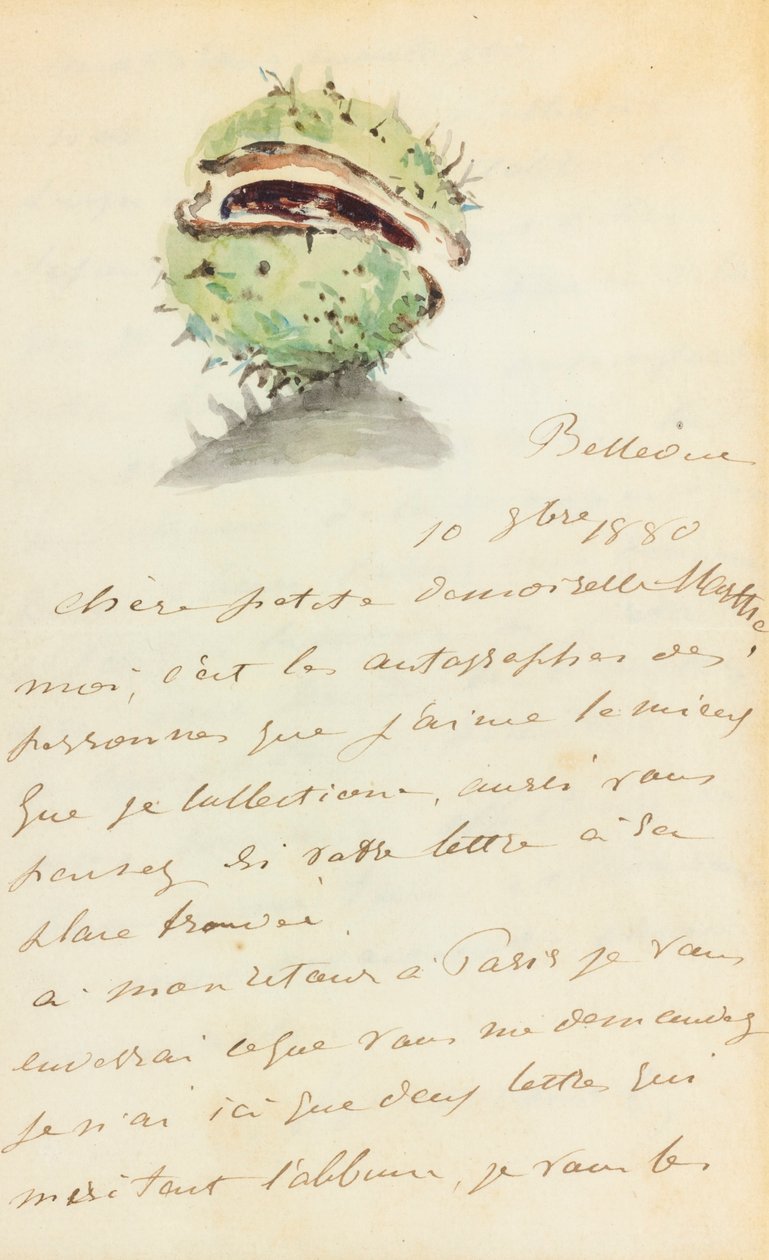 Bellevue
10 8bre 1880
chère petite demoiselle Marthe,
moi, c'est les autographes des
personnes que j'aime le mieux
que je collectionne, aussi vous
pensez si votre lettre a sa
place trouvée.
a mon retour à Paris je vous
enverrai ce que vous me demandez
je n'ai ici que deux lettres qui
méritent l'album, je vous les